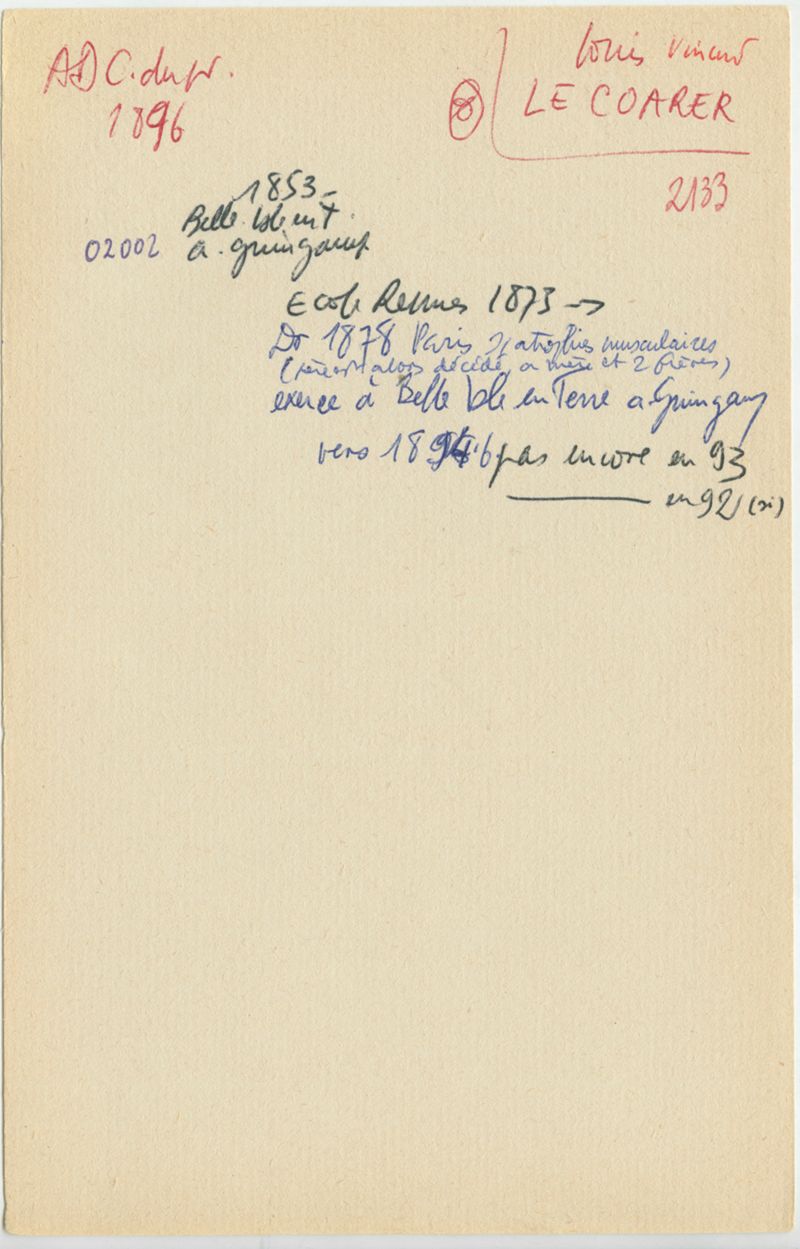 AD C. du N.
1896
Louis Vincent
⊗ LE COARER
2133
1853 -
Belle-Isle en T.
02002 a. Guingamp
Ecole Rennes 1873 →
Dr 1878 Paris s/ atrophies musculaires
(père alors décédé, a mère et 2 frères)
exerce à Belle Isle en Terre a. Guingamp
vers 1894.6 pas encore en 93
en 92 (si)